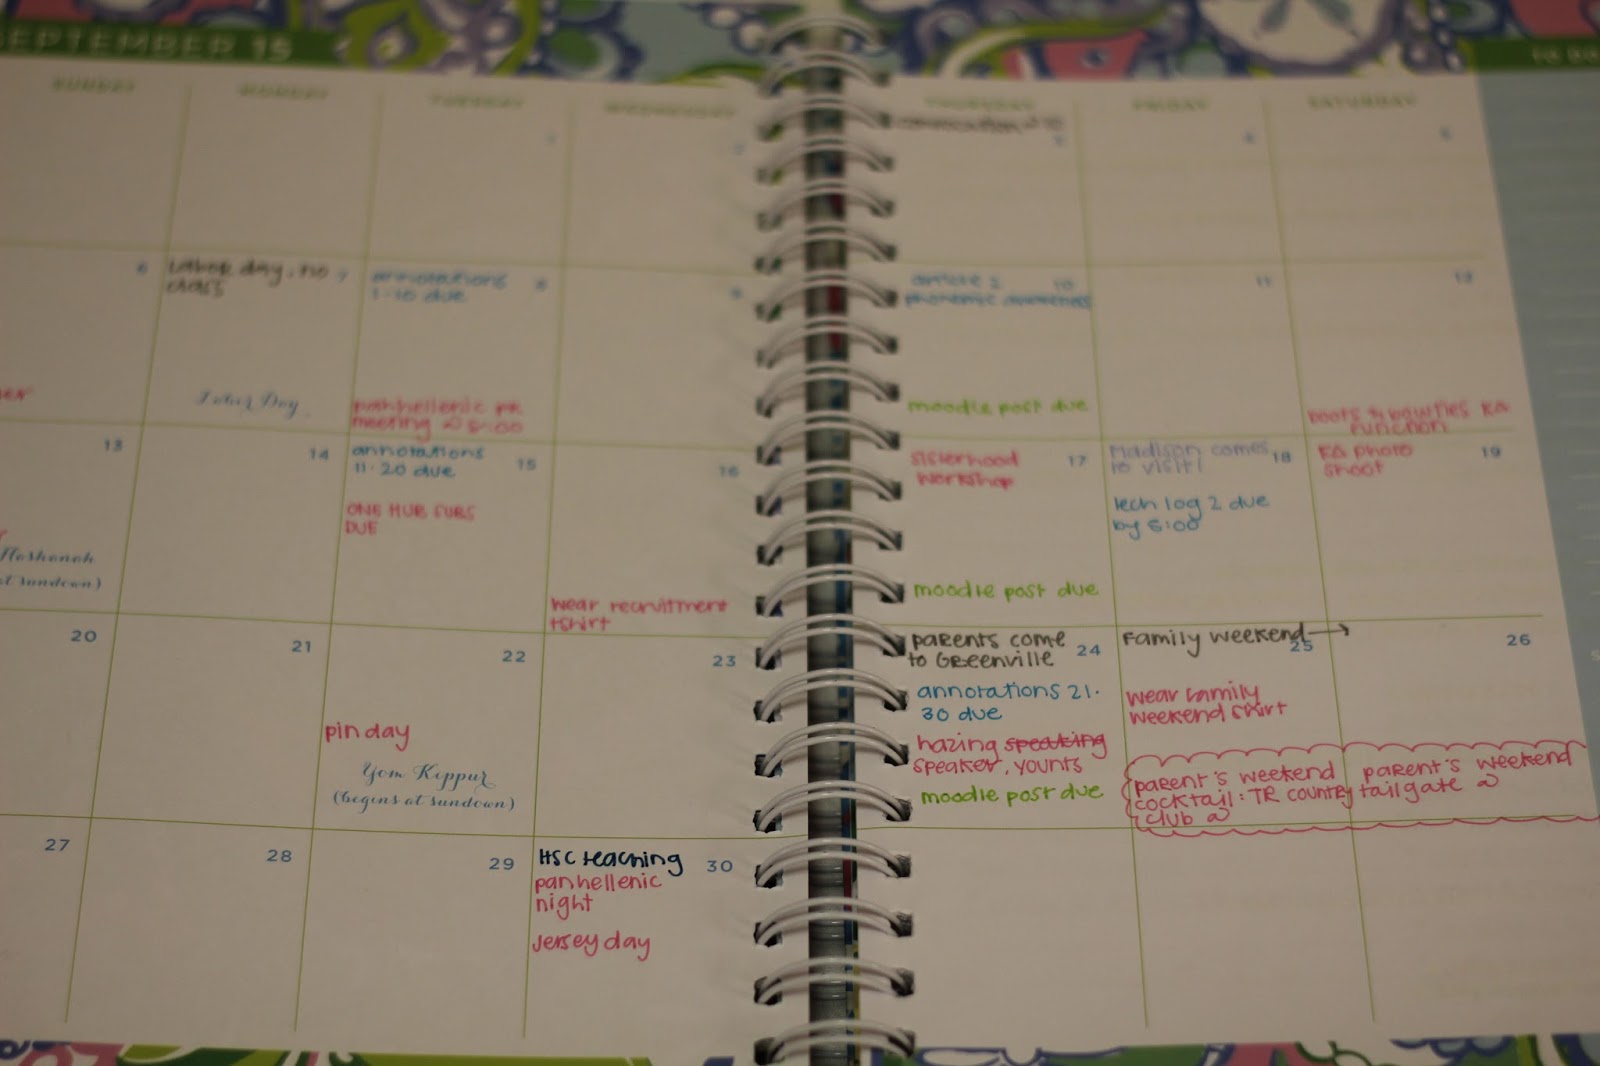 SEPTEMBER 15
TO DO
SUNDAY
MONDAY
TUESDAY
WEDNESDAY
THURSDAY
FRIDAY
SATURDAY
1
2
convocation
3
4
5
6
Labor day, no
class
7
Labor Day
annotations
1-10 due
8
panhellenic
meeting @ 5:00
9
10
phonemic awareness
moodle post due
11
12
boots &
function
13
Hashanah
at sundown)
14
annotations
11-20 due
15
ONE HUB SUBS
DUE
16
wear recruitment
tshirt
sisterhood
workshop
17
moodle post due
Madison comes
to visit!
18
tech log 2 due
by 5:00
photo
shoot
19
20
21
22
pin day
Yom Kippur
(begins at sundown)
23
parents come
to Greenville
24
annotations 21-
30 due
hazing speaking
speaker, Younts
moodle post due
Family weekend →
25
wear family
weekend shirt
parent's weekend
cocktail: TR country
club @
26
parent's weekend
tailgate @
27
28
29
HSC teaching
30
panhellenic
night
jersey day